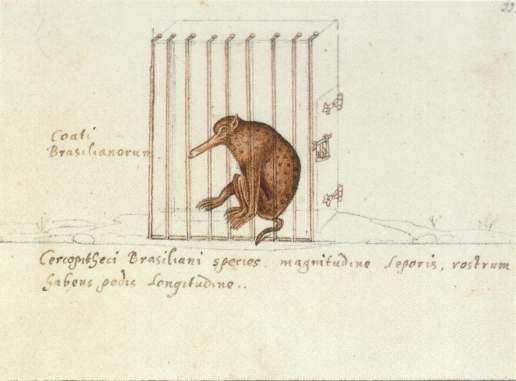 Coati
Brasilianorum
Cercopitheci Brasiliani species. magnitudine Leporis, rostrum
habens pedis Longitudine..